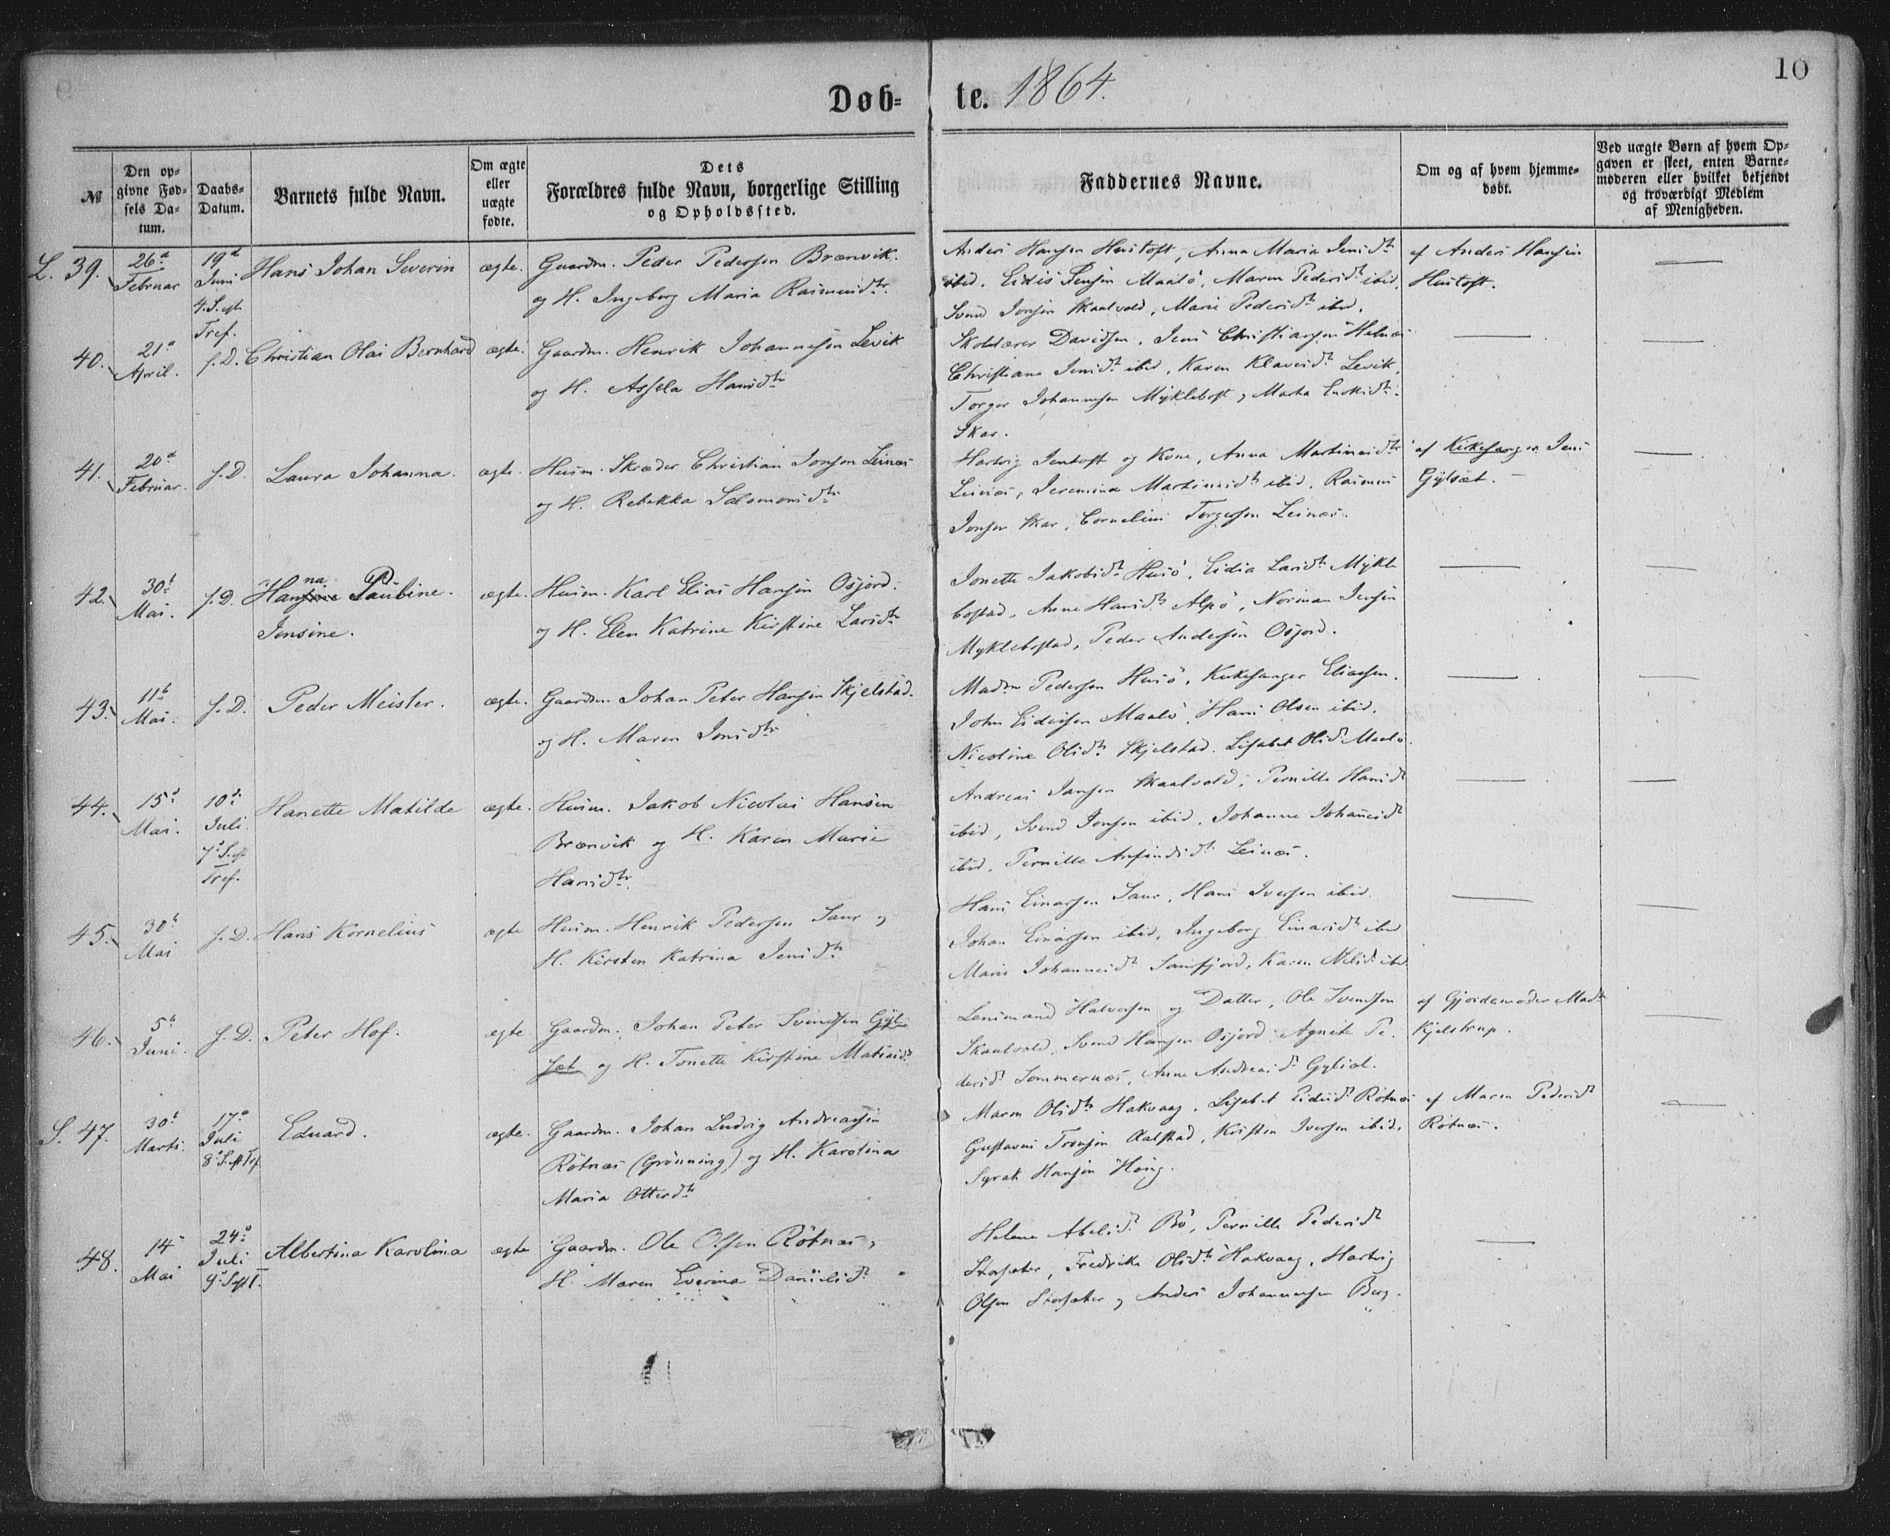 10
Døb- te. 1864.
№
Den opgivne Fødsels Datum.
Daabs-Datum.
Barnets fulde Navn.
Om ægte eller uægte fødte.
Dets Forældres fulde Navn, borgerlige Stilling og Opholdssted.
Faddernes Navne.
Om og af hvem hjemmedøbt.
Ved uægte Børn af hvem Opgaven er skeet, enten Barnemoderen eller hvilket bekjendt og troværdigt Medlem af Menigheden.
L. 39. 26d Februar 19d Juni 4.S.eft Tref. Hans Johan Severin ægte. Gaardm. Peder Pedersen Brænvik.
og H. Ingeborg Maria Rasmusdtr.
Anders Hansen Hustoft, Anna Maria Jensdtr
ibid. Eidis Jensen Maalö, Maren Pedersdtr ibid,
Svend Jonsen Skaalvold, Marie Pedersdtr ibid.
af Anders Hansen
Hustoft.
40. 21d April. s.D. Christian Olai Bernhard ægte. Gaardm. Henrik Johannesen Levik
og H. Assela Hansdtr
Skolelærer Davidsen, Jens Christiansen Helnes
Christiane Jensdtr ibid, Karen Klausdtr Levik,
Torger Johannesen Myklebost, Marta Enoksdtr.
Skar.
41. 20d Februar. s.D. Laura Johanna. ægte. Huusm. Skræder Christian Jonsen Leines
og H. Rebekka Salomonsdtr
Hartvig Jentoft og Kone, Anna Martinusdtr
Leines, Jeremina Martinusdtr ibid, Rasmus
Jonsen Skar, Cornelius Torgersen Leines.
af Kirkesanger Jens
Gylset.
42. 30t Mai. s.D. Hanna Pauline.
Jensine.
ægte. Huusm. Karl Elias Hansen Osjord.
og H. Elen Katrine Kirstine Larsdtr
Jonette Jakobsdtr Husö, Lidia Larsdtr Mykl
bostad, Anne Hansdtr Alpö, Norman Jensen
Myklebostad, Peder Andersen Osjord.
43. 11t Mai. s.D. Peder Meister. ægte. Gaardm. Johan Peter Hansen Skjelstad.
og H. Maren Jonsdtr
Madm Pedersen Husö, Kirkesanger Eliassen.
John Eidissen Maalö, Hans Olsen ibid.
Nicoline Olsdtr Skjelstad. Lisabet Olsdtr Maalö.
44. 15d Mai. 10d Juli 7d S.eft Tref. Hanette Matilde ægte. Huusm. Jakob Nicolai Hansen
Brænvik og H. Karen Marie
Hansdtr.
Andreas Jansen Skaalvold, Pernille Hansdtr
ibid, Svend Jonsen ibid, Johanne Johansdtr
ibid. Pernille Arfindsdtr Leines.
45. 30t Mai s.D. Hans Kornelius ægte Huusm. Henrik Pedersen Saur og
H. Kirsten Katrina Jensdtr
Hans Einarsen Saur, Hans Iversen ibid.
Johan Einarsen ibid, Ingeborg Einarsdtr ibid
Maris Johannesdtr Saursfjord, Karen Nilsdtr ibid.
46. 5t Juni. s.D. Peter Hof. ægte Gaardm. Johan Peter Svendsen Gyl-
set og H. Tonette Kirstine Matiasdtr
Lensmand Halversen og Datter, Ole Svendsen
Skaalvold, Svend Hansen Osjord. Agnete Pe-
dersdtr Sommernes, Anne Andreasdtr Gylset.
af Gjordemoder Madm
Kjelstrup.
S. 47. 30t Marts. 17d Juli 8d S.eft Tref. Eduard. ægte. Gaardm. Johan Ludvig Andreassen
Rötnes (Grönning) og H. Karolina
Maria Ottersdtr
Maren Olsdtr Hakvaag, Lisabet Eidisdtr Rötnes
Gustavus Tronsen Aalstad, Kirsten Iversen ibid.
Syrak Hansen Höug.
af Maren Pedersdtr
Rötnes.
48. 14 Mai 24d Juli 9d S.eft T. Albertina Karolina ægte Gaardm. Ole Olsen Rötnes,
H. Maren Everina Danielsdtr
Helene Abelsdtr Bö, Pernille Pedersdtr
Storsæter, Fredrike Olsdtr Hakvaag, Hartvig
Olsen Storsæter og Anders Johannesen Berg.